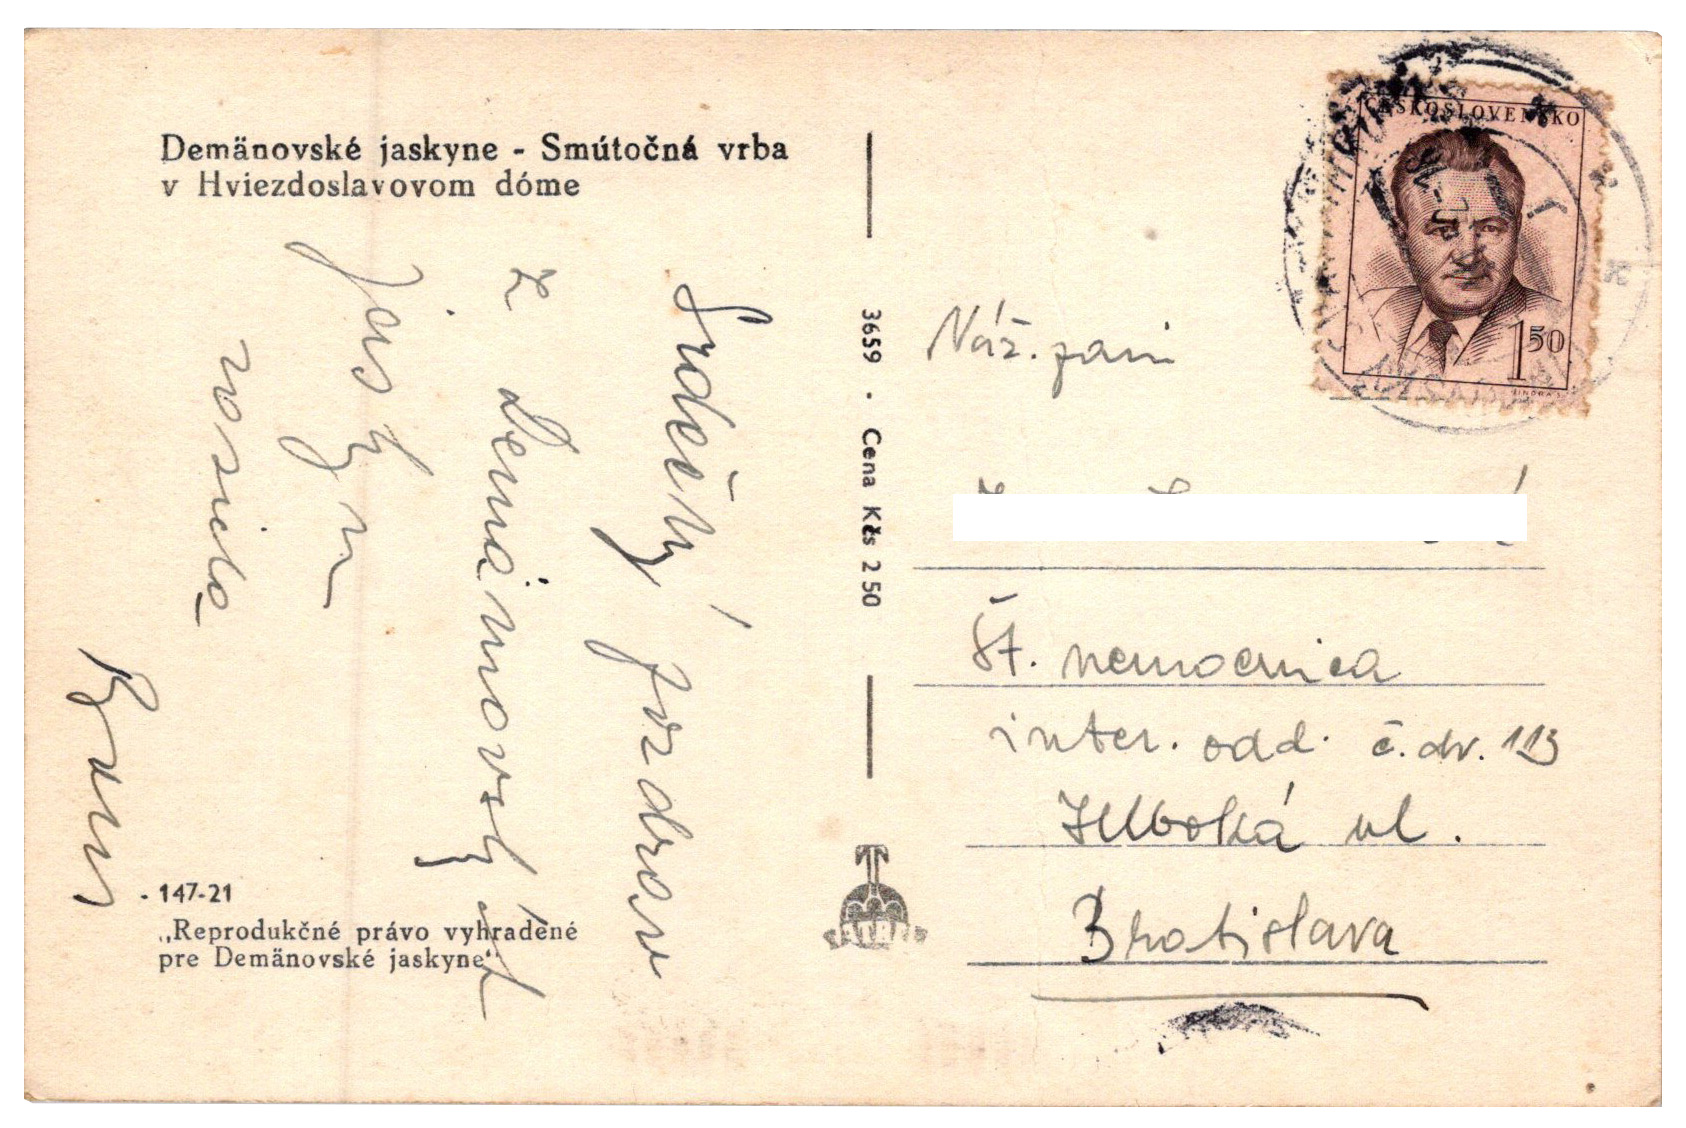 Demänovské jaskyne - Smútočná vrba
v Hviezdoslavovom dóme
Srdečný pozdrav
z Demänovských
jaskýň
posiela
3659 • Cena Kčs 2 50
ČESKOSLOVENSKO
1 50
Váž. pani
Št. nemocnica
inter. odd. č. dv. 113
Hlboká ul.
Bratislava
147-21
„Reprodukčné právo vyhradené
pre Demänovské jaskyne“
TATRAN